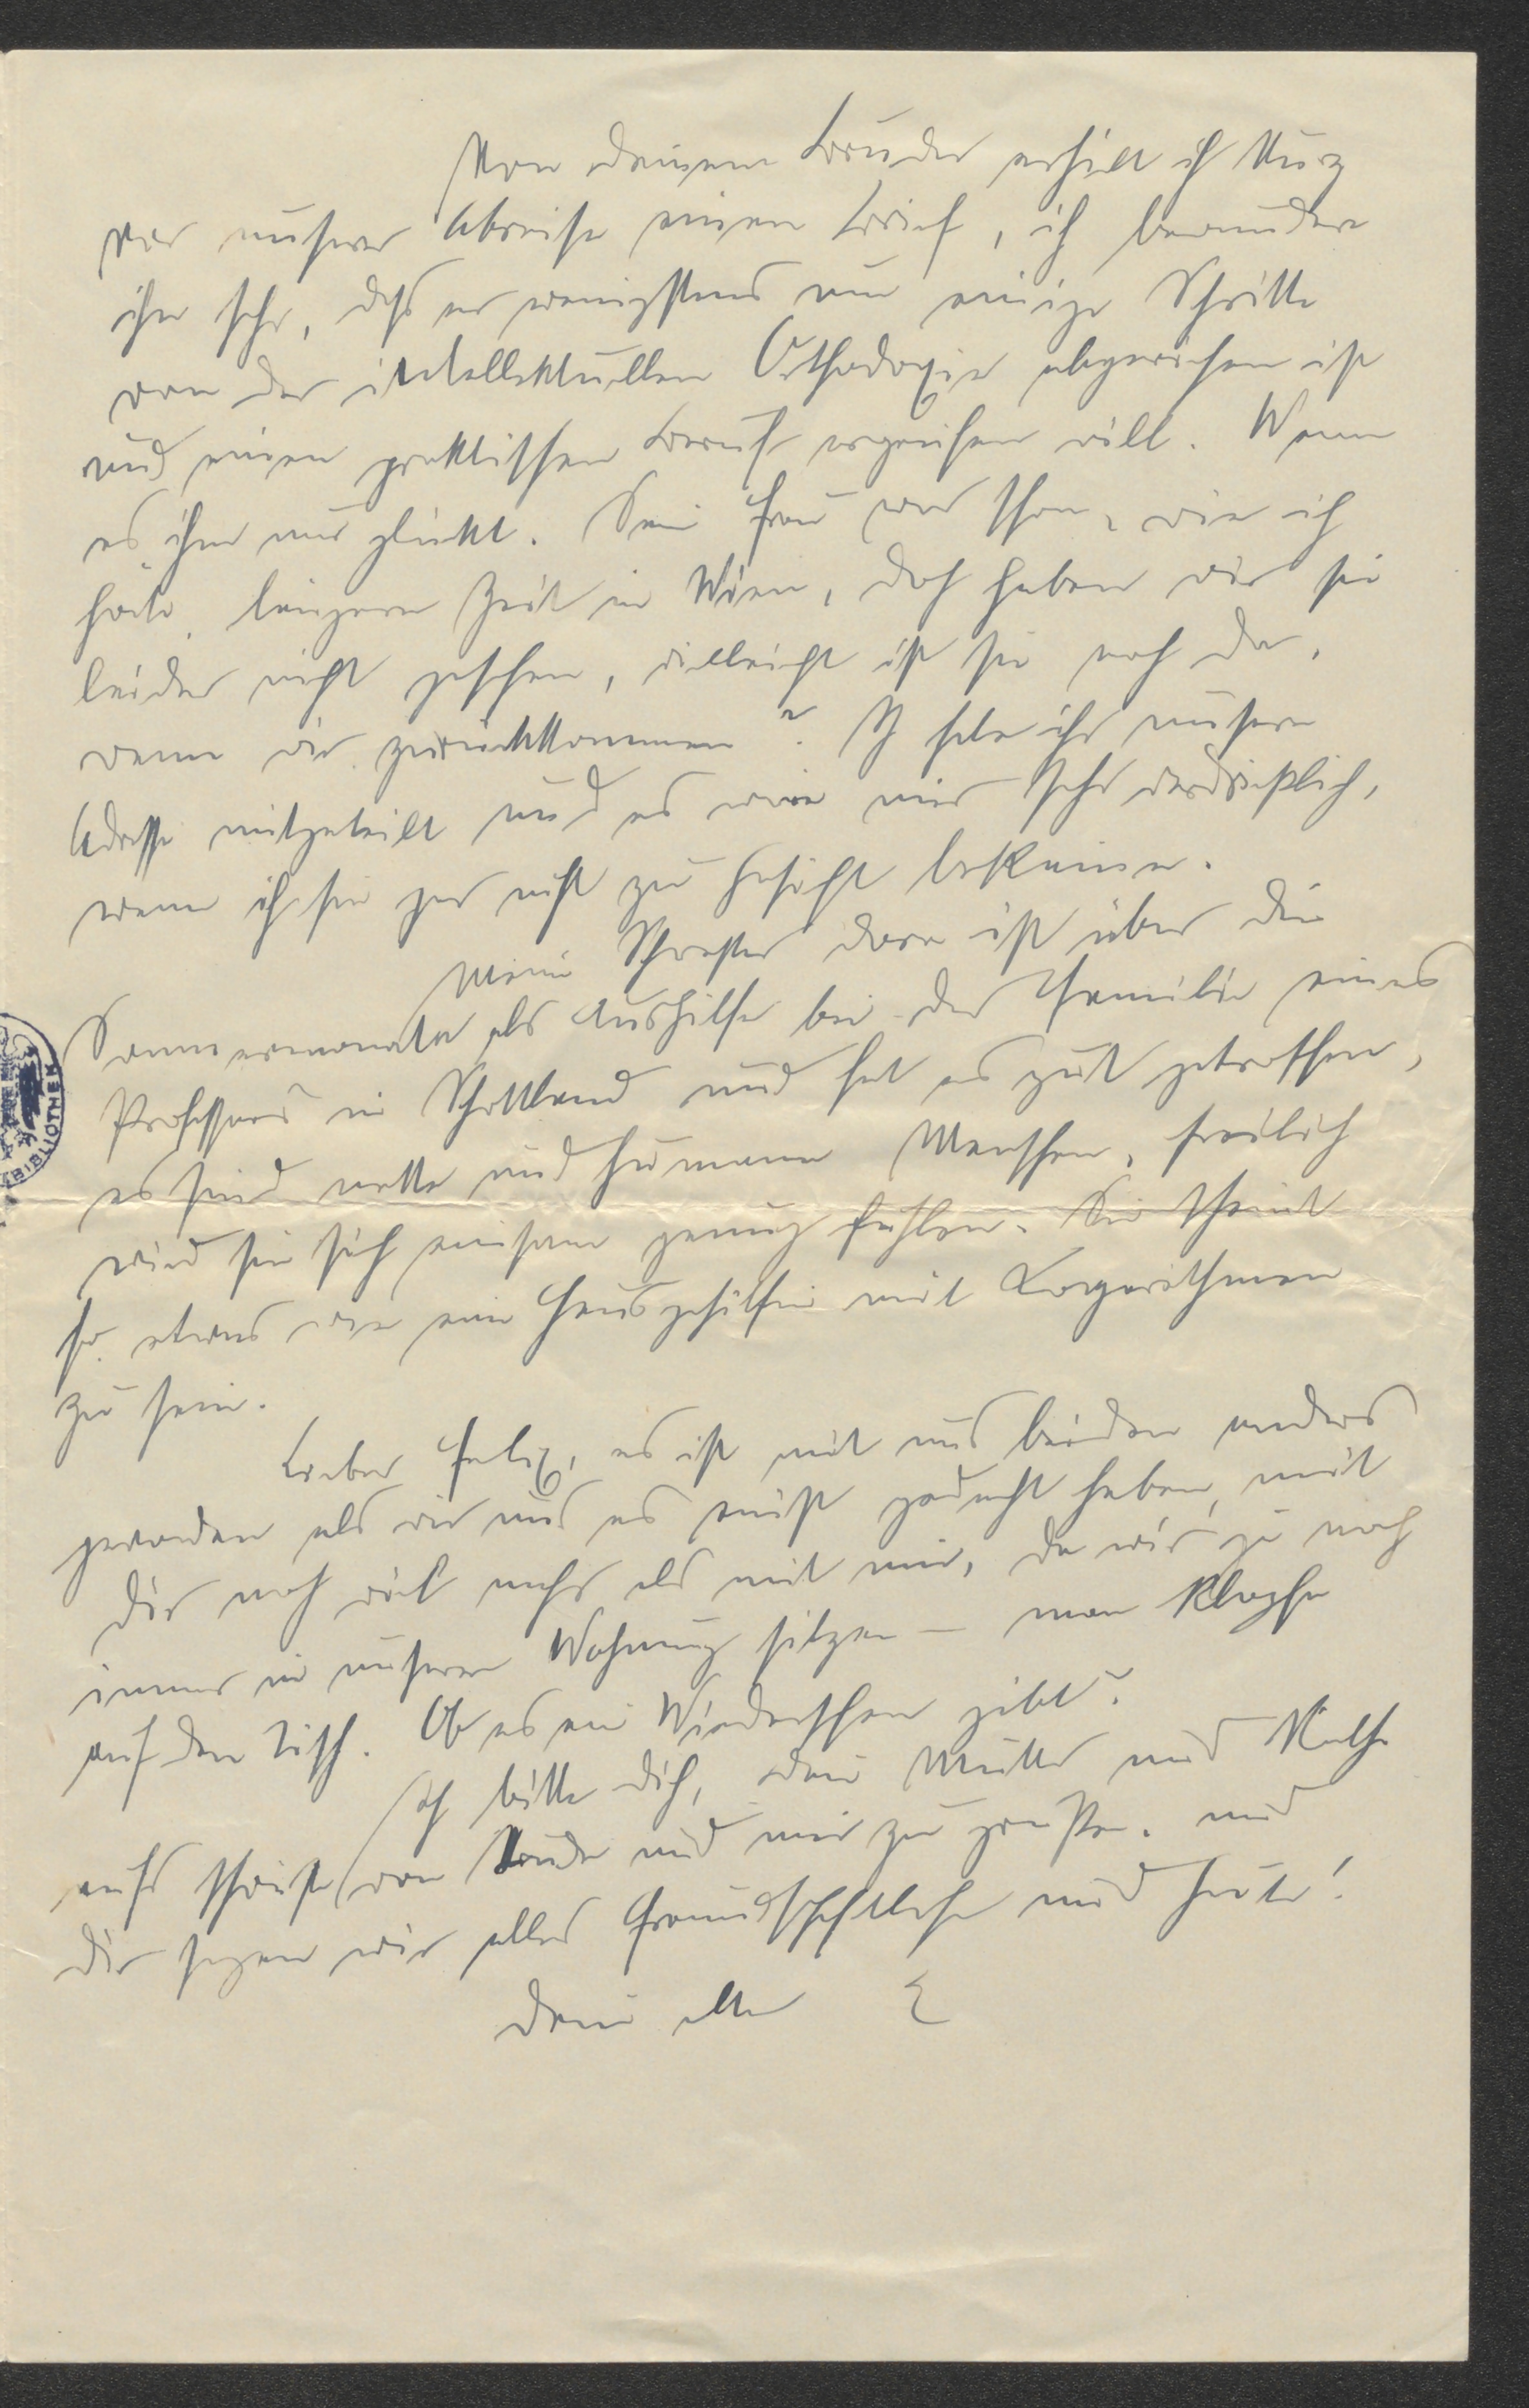 Von deinem Bruder erhielt ich kurz
vor unserer Abreise einen Brief, ich bewundere
ihn sehr, daß er wenigstens um einige Schritte
von der intellektuellen Orthodoxie abgewichen ist
und einen praktischen Beruf ergreifen will. Wenn
es ihm nur glückt. Seine Frau war schon, wie ich
hörte, längere Zeit in Wien, doch haben wir sie
leider nicht gesehen, vielleicht ist sie noch da,
wenn wir zurückkommen? Ich habe ihr unsere
Adresse mitgeteilt und es wäre mir sehr verdrießlich,
wenn ich sie gar nicht zu Gesicht bekäme.
Meine Schwester Dora ist über die
Sommermonate als Aushilfe bei der Familie eines
Professors in Schottland und hat es gut getroffen,
es sind nette und humane Menschen, freilich
wird sie sich einsam genug fühlen. Sie scheint
so etwas wie eine Hausgehilfin mit Logarithmen
zu sein.
Lieber Felix, es ist mit uns beiden anders
geworden als wir uns es einst gedacht haben, mit
dir noch viel mehr als mit mir, da wir ja noch
immer in unserer Wohnung sitzen – man klopfe
auf den Tisch. Ob es ein Wiedersehen gibt?
Ich bitte dich, deine Mutter und Käthe
aufs schönste von und mir zu grüßen. und
dir sagen wir alles Freundschaftliche und Gute!
Dein alter E
BIBLIOTHEK